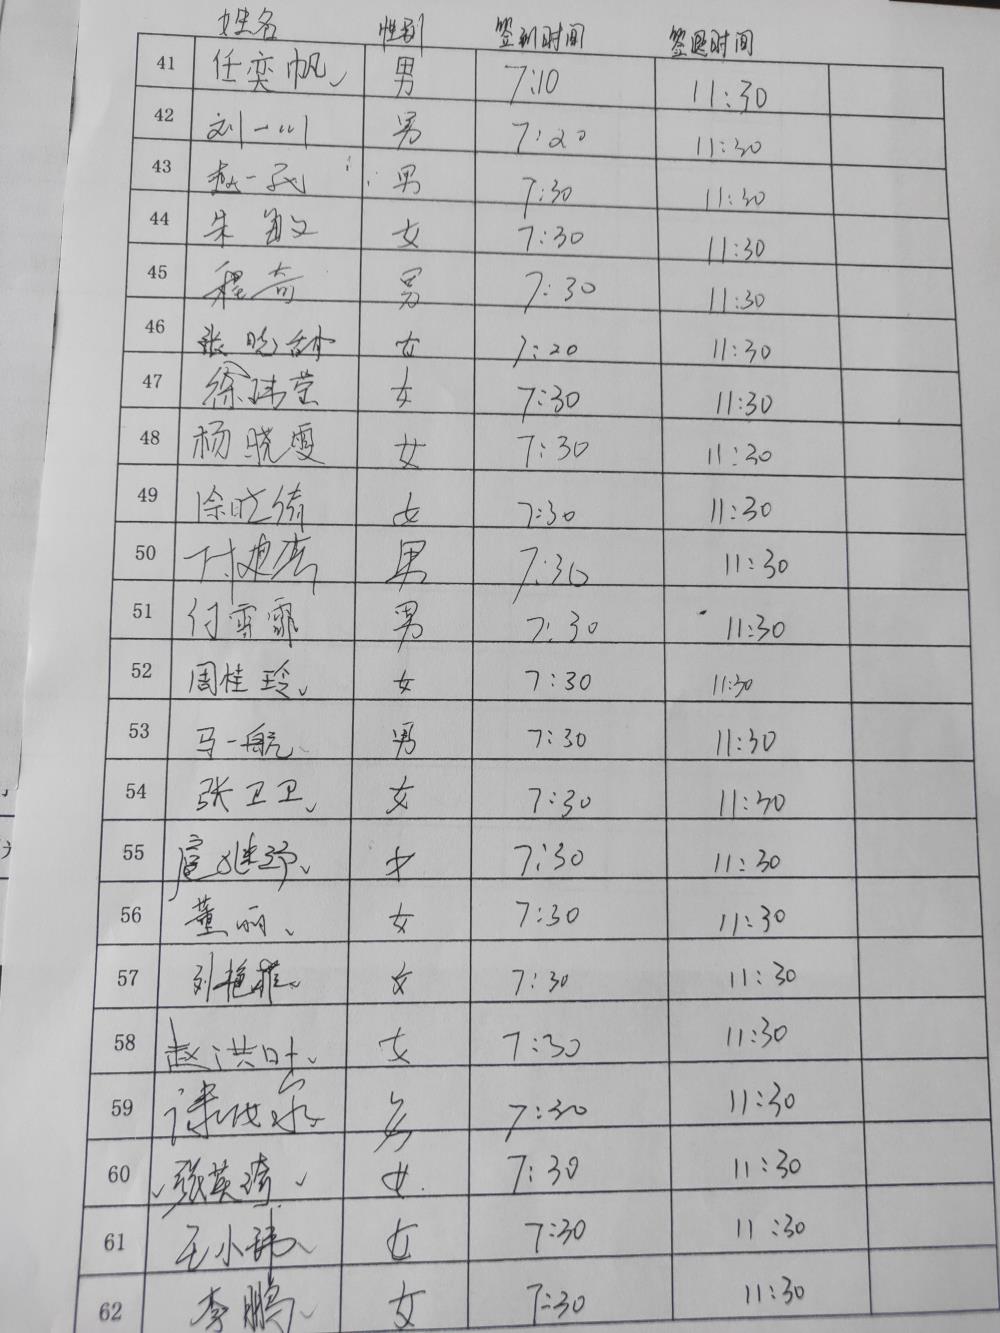 姓名 性别 签到时间 签退时间
41 任奕帆 男 7:10 11:30
42 刘一川 男 7:20 11:30
43 赵一 男 7:30 11:30
44 朱 女 7:30 11:30
45 程奇 男 7:30 11:30
46 张晓 女 7:20 11:30
47 徐玮莹 女 7:30 11:30
48 杨晓雯 女 7:30 11:30
49 徐晓绮 女 7:30 11:30
50 付 男 7:30 11:30
51 付雪霏 男 7:30 11:30
52 周桂玲 女 7:30 11:30
53 马一航 男 7:30 11:30
54 张卫卫 女 7:30 11:30
55 继 7:30 11:30
56 董丽 女 7:30 11:30
57 刘艳 女 7:30 11:30
58 赵洪叶 女 7:30 11:30
59 7:30 11:30
60 张英琦 女 7:30 11:30
61 王小玮 女 7:30 11:30
62 李鹏 女 7:30 11:30